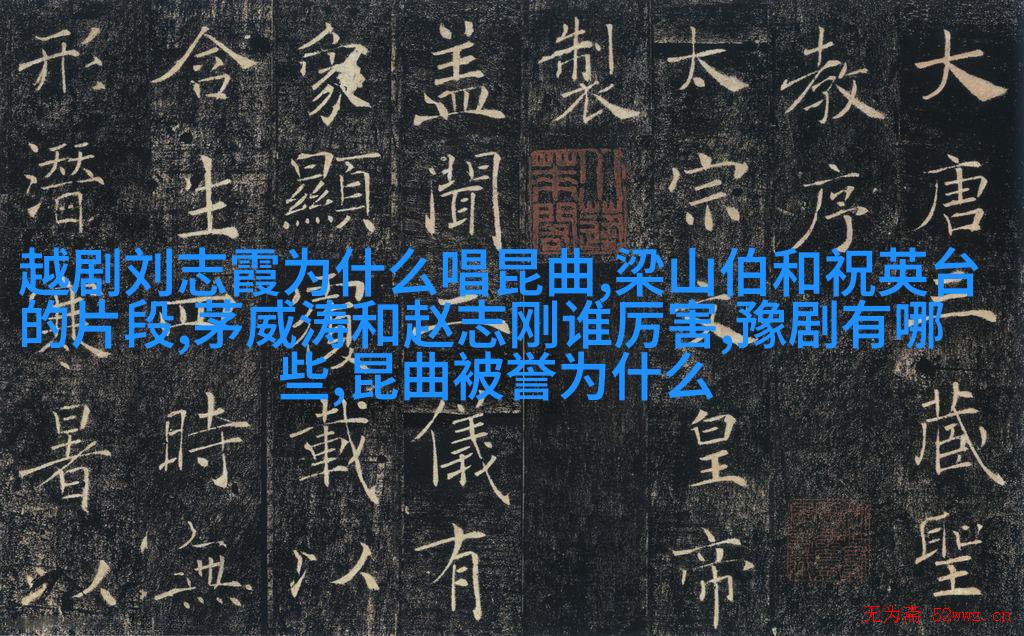 大唐三藏聖
教序
太宗文皇帝
製
盖聞二儀有
象顯覆載以
含生四時無
形潛寒暑以
越剧刘志霞为什么唱昆曲,梁山伯和祝英台
的片段,茅威涛和赵志刚谁厉害,豫剧有哪
些,昆曲被誉为什么
无为斋 52wwz.cn